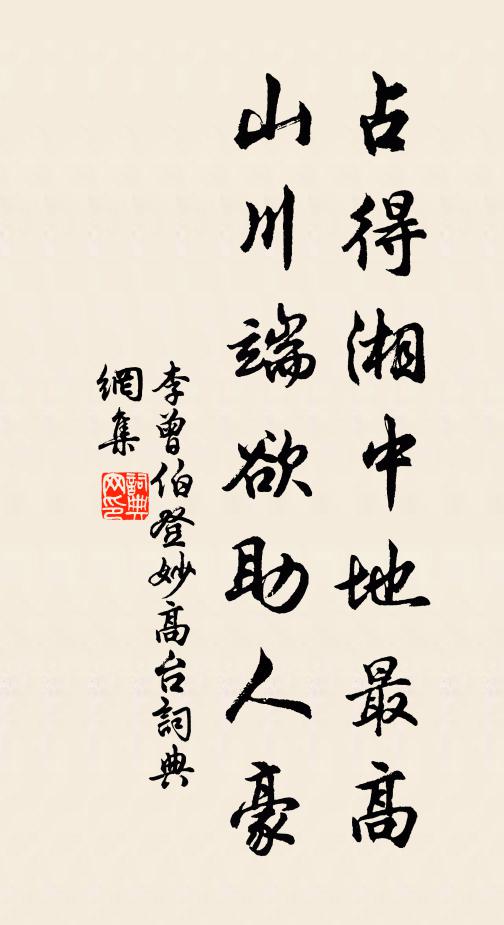 占得湘中地最高
山川端欲助人豪
李曾伯登妙高台詞典
網集
詞典
网印